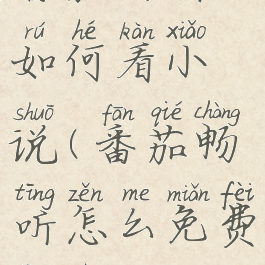 rú hé kàn xiǎo
如何看小
shuō fān qié chàng
说(番茄畅
tīng zěn me miǎn fèi
听怎么免费